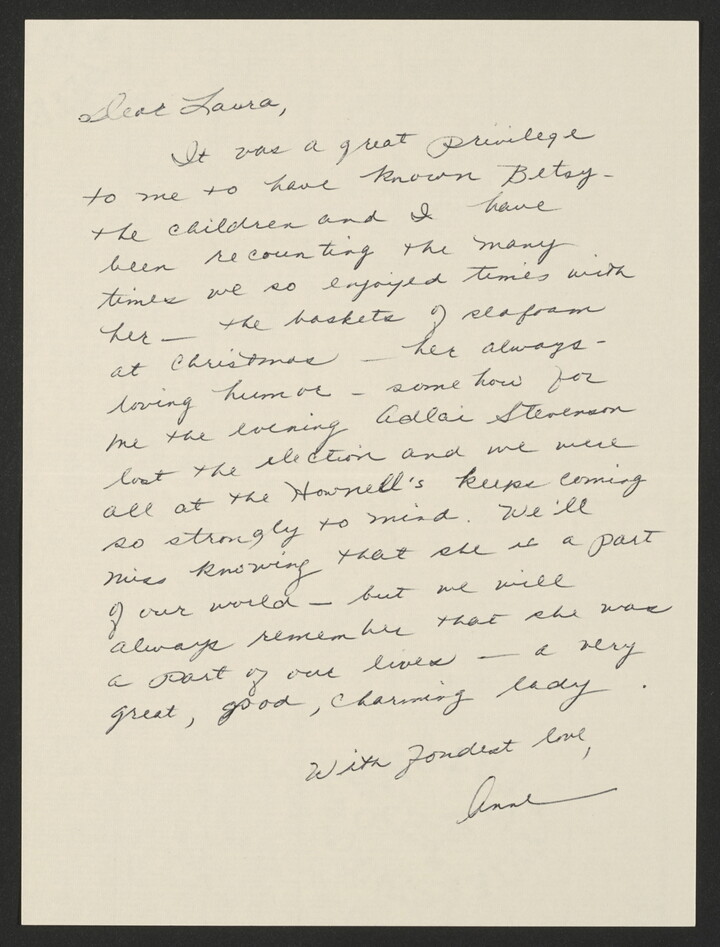 Dear Laura,
It was a great privilege
to me to have known Betsy-
the children and I have
been recounting the many
times we so enjoyed times with
her — the baskets of seafoam
at Christmas — her always-
loving humor - somehow for
me the evening Adlai Stevenson
lost the election and we were
all at the Hownell's keeps coming
so strongly to mind. We'll
miss knowing that she is a part
of our world — but we will
always remember that she was
a part of our lives — a very
great, good, charming lady.
With fondest love,
Anne